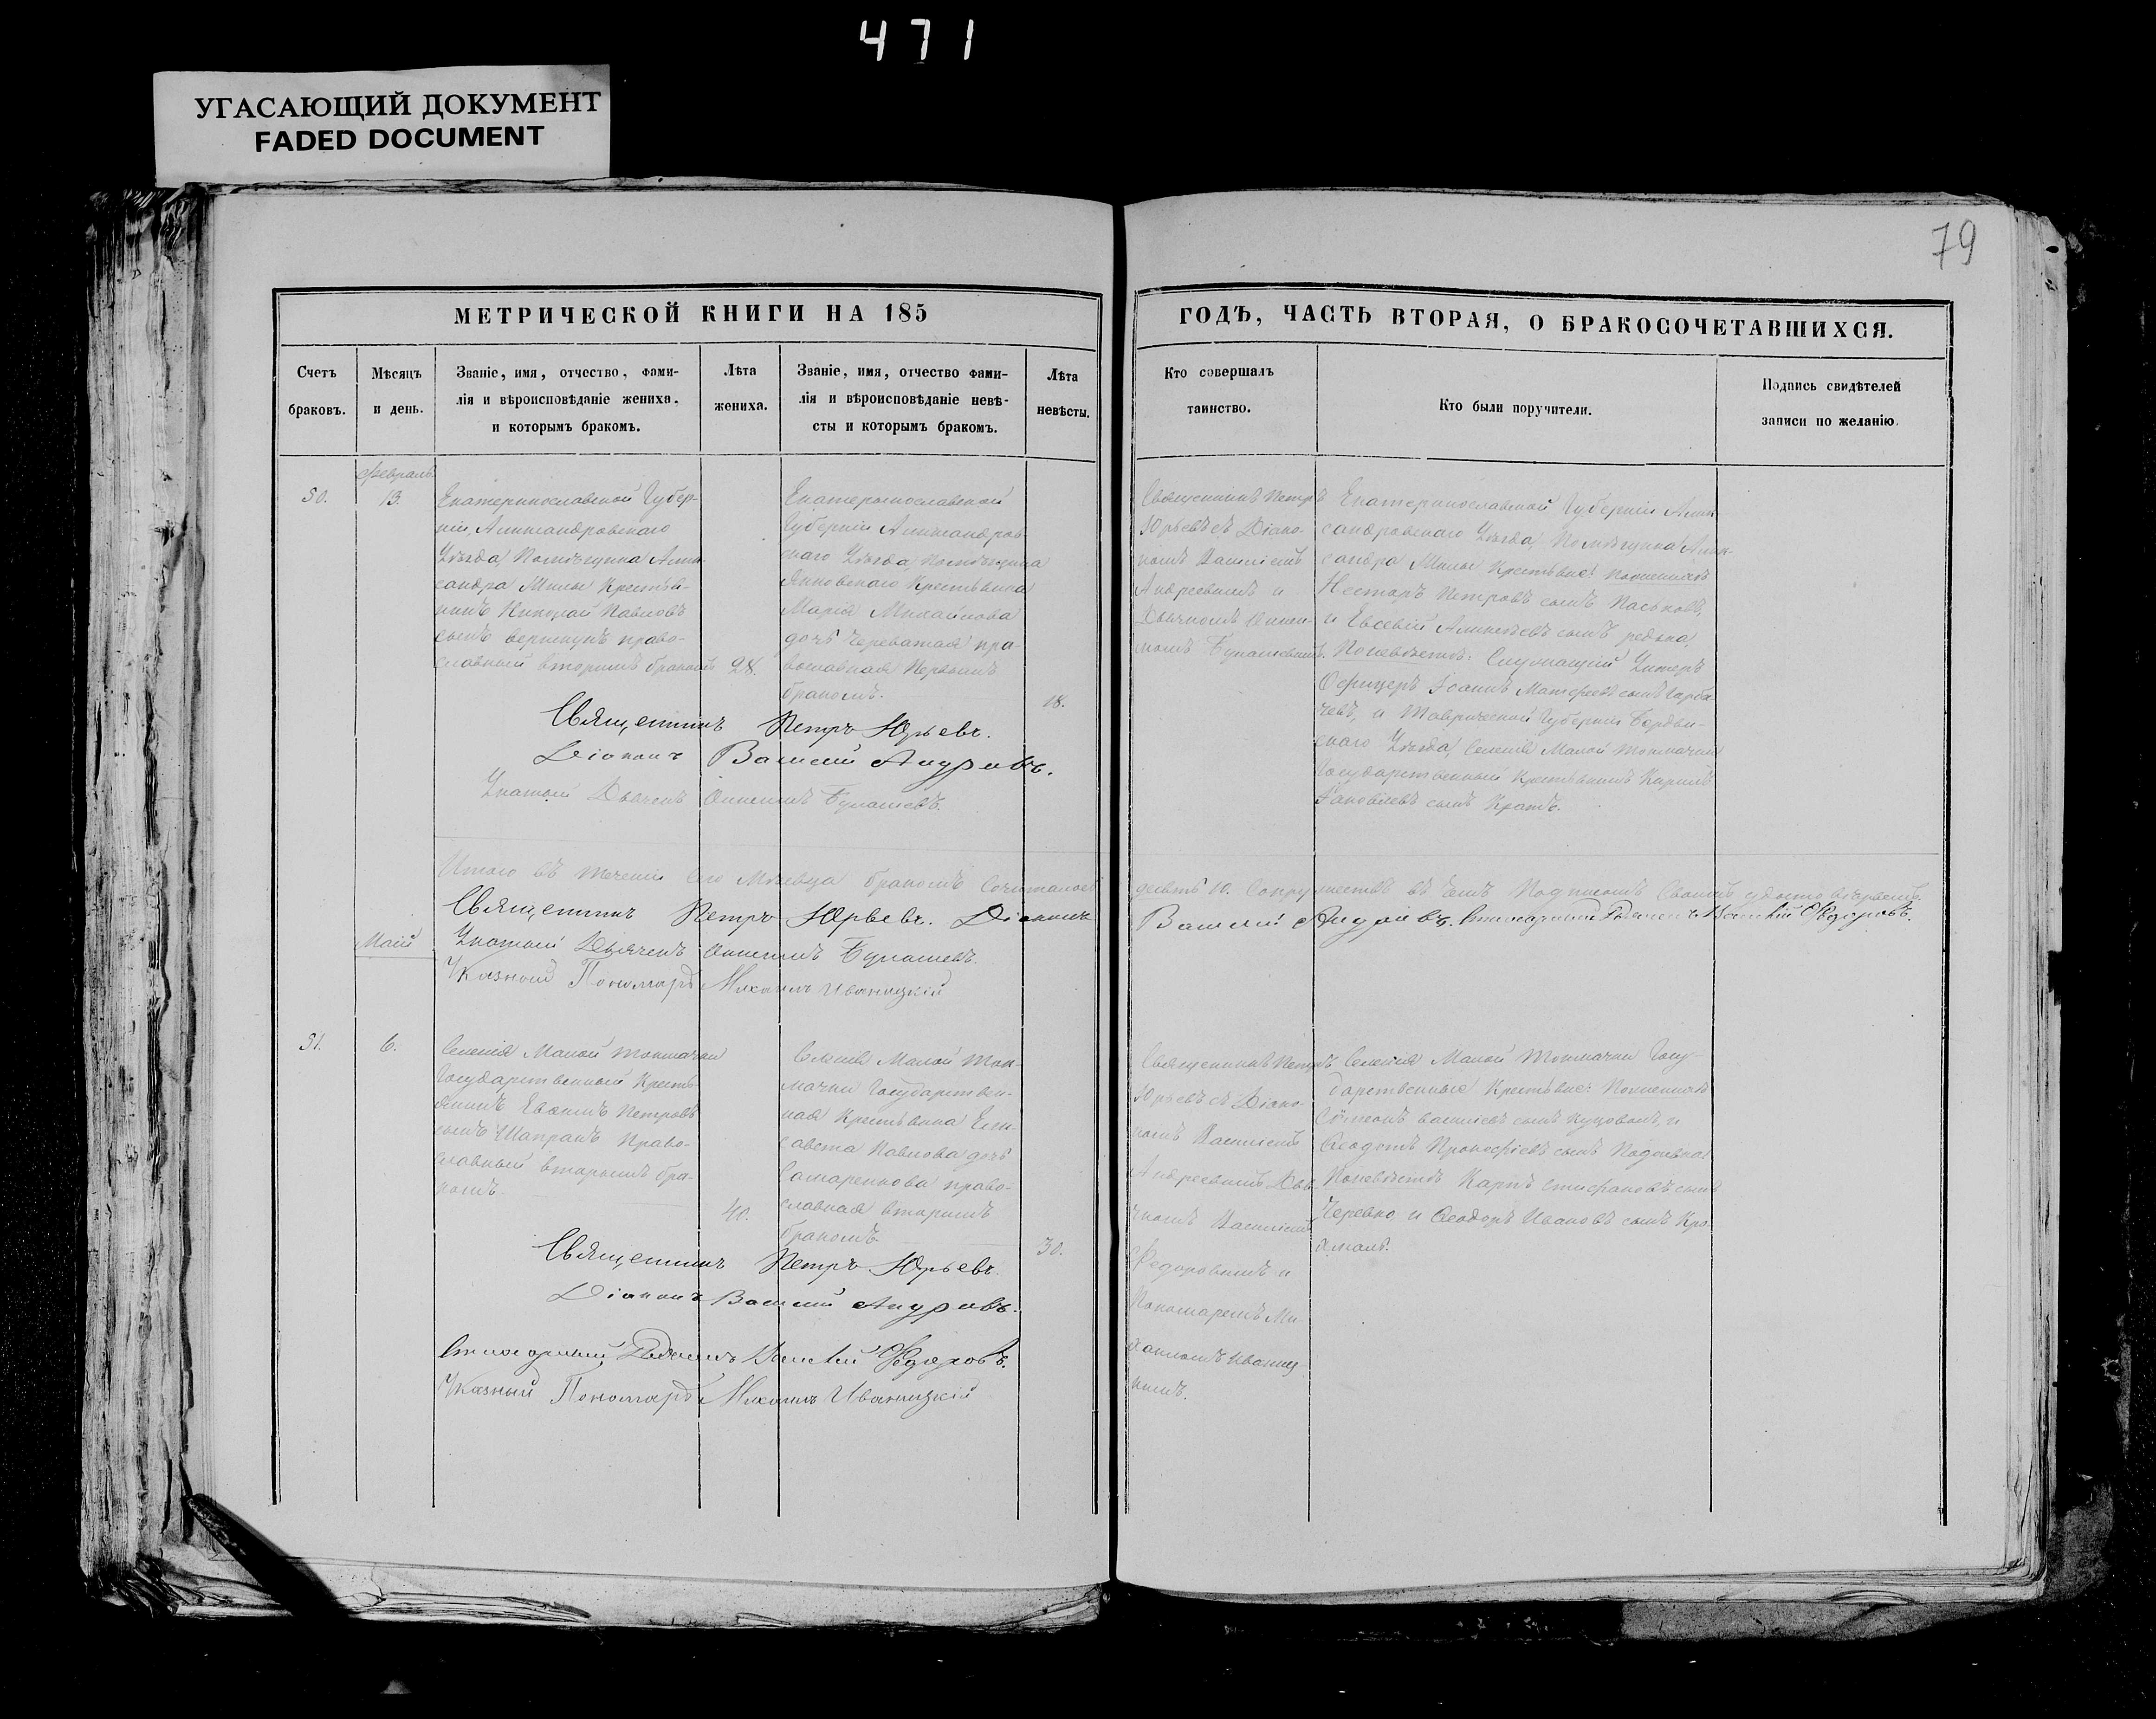 471
УГАСАЮЩИЙ ДОКУМЕНТ
FADED DOCUMENT
79
МЕТРИЧЕСКОЙ КНИГИ НА 185
ГОДѢ, ЧАСТЬ ВТОРАЯ, О БРАКОСОЧЕТАВШИХСЯ.
Счетъ
браковъ.
Мѣсяцъ
и день.
Званіе, имя, отчество, фами-
лія и вѣроисповѣданіе жениха.
и которымъ бракомъ.
Лѣта
жениха.
Званіе, имя, отчество фами-
лія и вѣроисповѣданіе невѣ-
сты и которымъ бракомъ.
Лѣта
невѣсты.
Кто совершалъ
таинство.
Кто были поручители.
Подпись свидѣтелей
записи по желанію.
50.
Февраль
13.
Екатеринославской Губер-
ніи, Александровскаго
Уѣзда Помѣщика Алек-
сандра Милы Крестья-
нинъ Николай Павловъ
сынъ право-
славный вторымъ бракомъ
28.
Екатеринославской
Губерніи Александров-
скаго Уѣзда Помѣщика
Янковскаго Крестьянка
Марія Михайлова
дочь Череватая пра-
вославная Первымъ
бракомъ.
18.
Священникъ Петръ
Юрьевъ съ Діако-
номъ Василіемъ
Андреевымъ и
Дьячкомъ
Екатеринославской Губерніи Алек-
сандровскаго Уѣзда, Помѣщика Алек-
сандра Милы Крестьяне: По женихѣ
Несторъ Петровъ сынъ Паськовъ,
и Евсевій Алексѣевъ сынъ редька,
По невѣстѣ: Служащій Унтеръ
Офицеръ Іоаннъ Матфеевъ сынъ Горба-
чевъ, и Таврической Губерніи Бердян-
скаго Уѣзда, Селенія Малой Токмачки
Государственный Крестьянинъ Карпъ
Іаковлевъ сынъ
Священникъ Петръ Юрьевъ.
Діаконъ Василій Андреевъ.
Указный Дьячекъ
Итого въ теченіи сего Мѣсяца бракомъ сочеталось
десять 10. Супружествъ въ чемъ Подписомъ Своимъ удостовѣряемъ.
Священникъ Петръ Юрьевъ. Діаконъ
Василій Андреевъ. Стихарный Дьячекъ Василій Федоровъ.
Указный Дьячекъ
Указный Пономарь Михаилъ Иваницкій
Май
51.
6.
Селенія Малой Токмачки
Государственный Кресть-
янинъ Евфимъ Петровъ
сынъ Шапранъ Право-
славный вторымъ бра-
комъ.
40.
Селенія Малой Ток-
мачки Государствен-
ная Крестьянка Ели-
савета Павлова дочь
Самаренкова право-
славная вторымъ
бракомъ
30.
Священникъ Петръ
Юрьевъ съ Діако-
номъ Василіемъ
Андреевымъ Дья-
чкомъ Василіемъ
Федоровымъ и
Пономаремъ Ми-
хаиломъ Иваниц-
кимъ.
Селенія Малой Токмачки Госу-
дарственные Крестьяне: По женихѣ
Сѵмеонъ Василіевъ сынъ и
Ѳеодотъ Прокофіевъ сынъ
По невѣстѣ Карпъ Стефановъ сынъ
Черевко, и Ѳеодоръ Ивановъ сынъ Кро-
хмаль.
Священникъ Петръ Юрьевъ.
Діаконъ Василій Андреевъ.
Стихарный Дьячекъ Василій Федоровъ.
Указный Пономарь Михаилъ Иваницкій